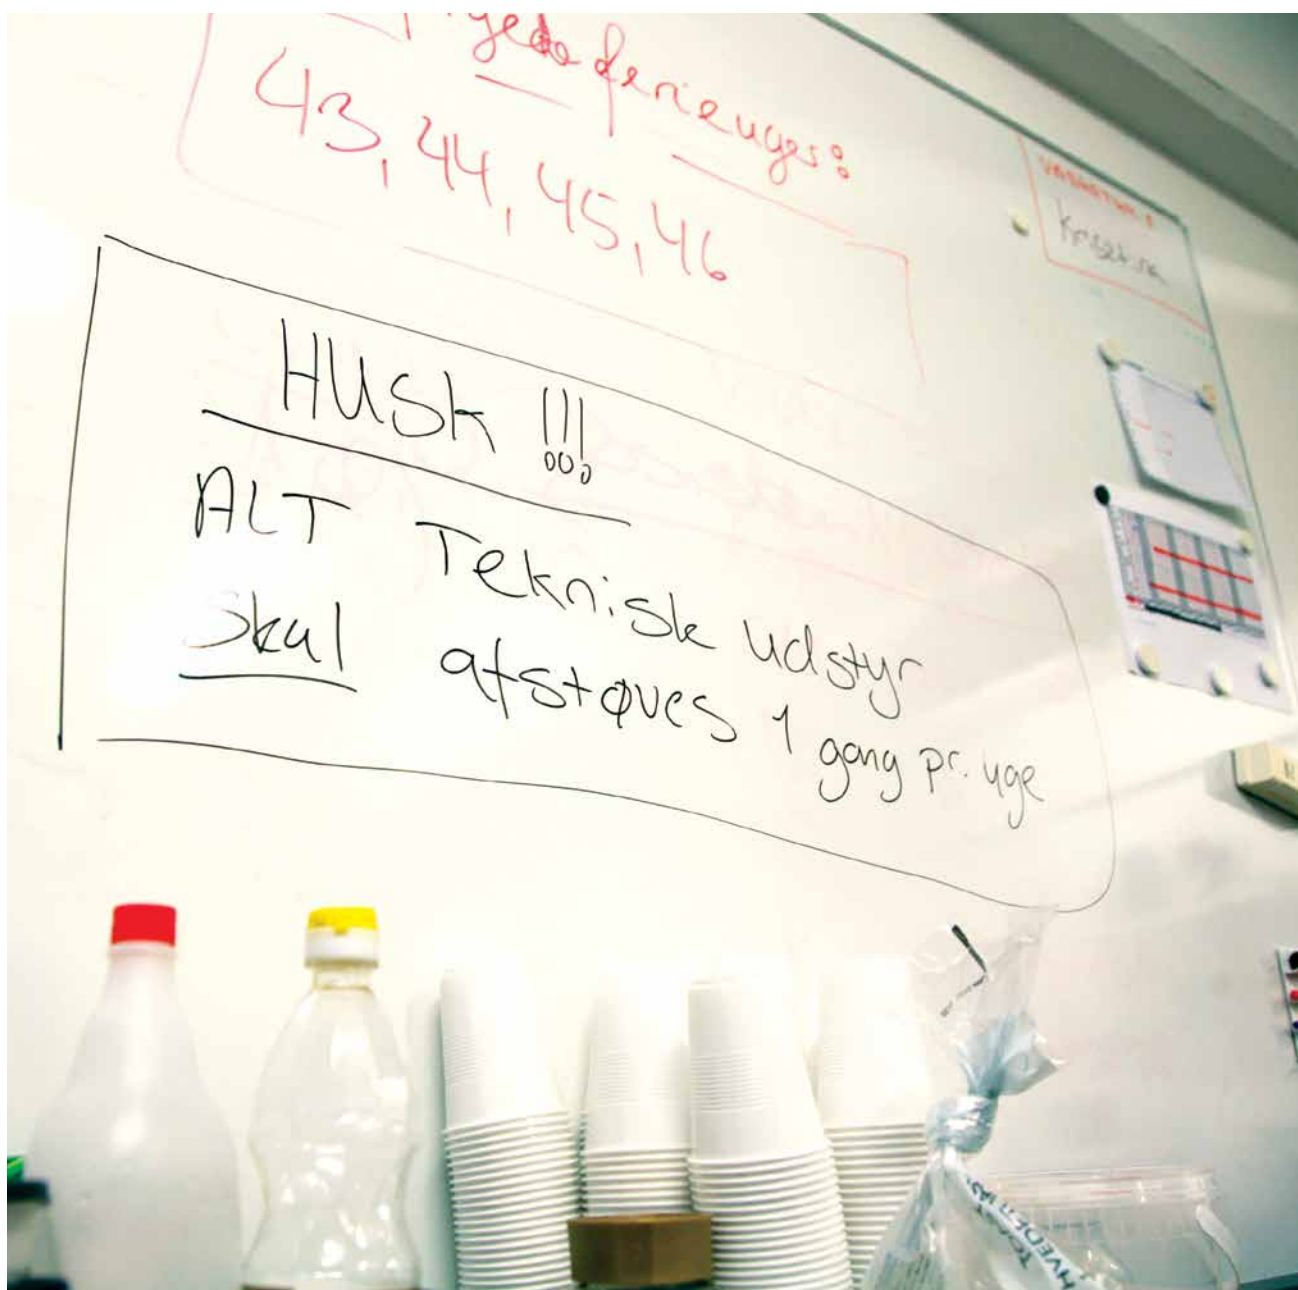 ferieuger:
43, 44, 45, 46
HUSK !!!
ALT Teknisk udstyr
Skal afstøves 1 gang pr. uge
HVEDE